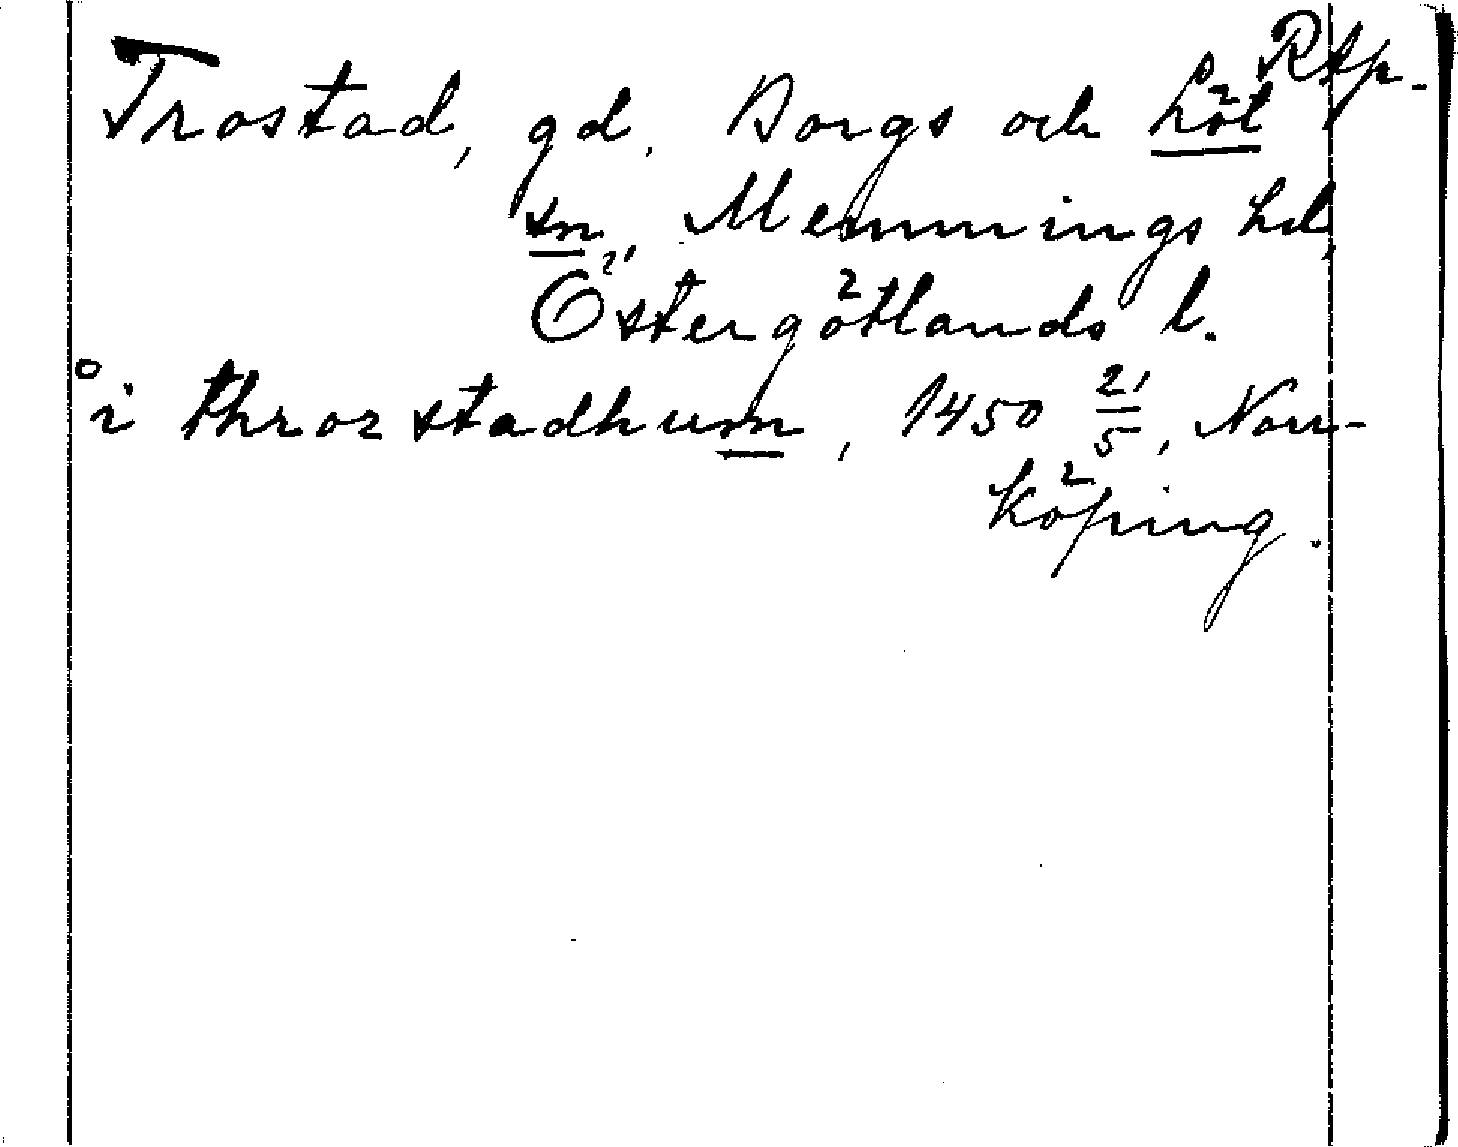 Rtp.
Trostad, gd. Borgs och Löt
sn, Memmings hd,
Östergötlands l.
°i throzstadhum, 1450 21/5, Norr-
köping.